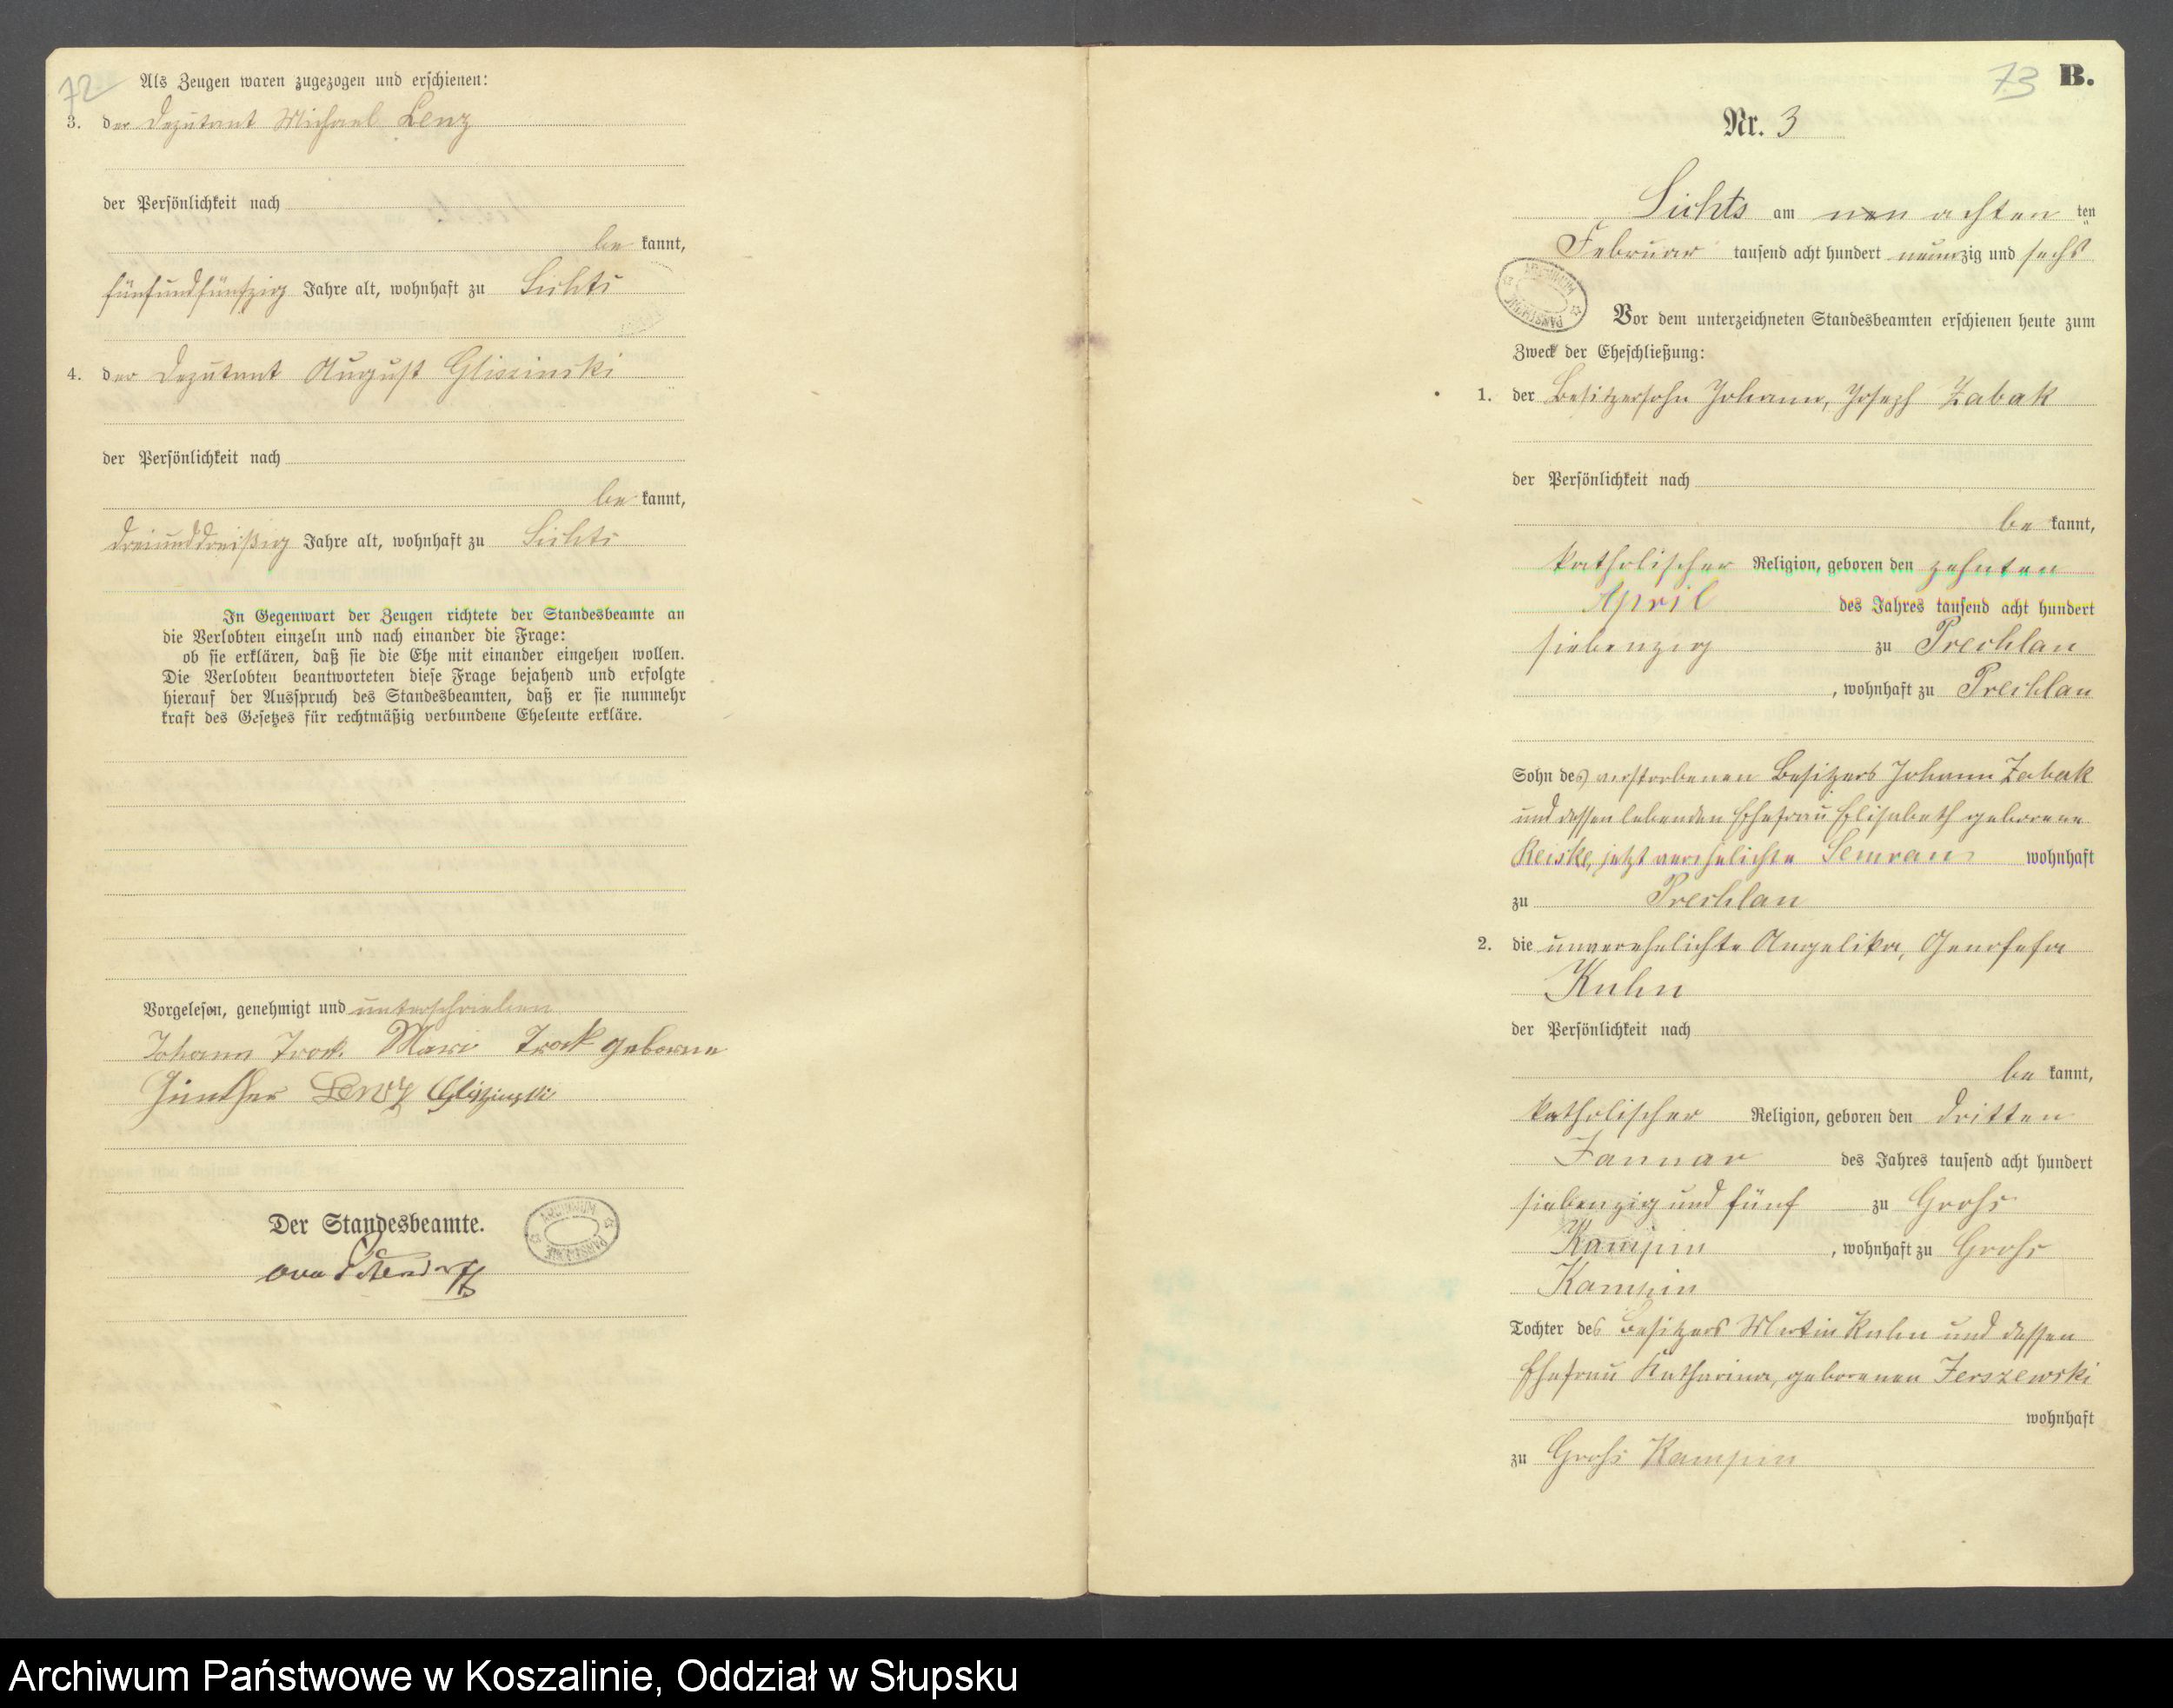 72
Als Zeugen waren zugezogen und erschienen:
3. der Deputant Michael Lenz
der Persönlichkeit nach
be kannt,
fünfundfünfzig Jahre alt, wohnhaft zu Lichts
4. der Deputant August Gliszinski
der Persönlichkeit nach
be kannt,
dreiunddreißig Jahre alt, wohnhaft zu Lichts
In Gegenwart der Zeugen richtete der Standesbeamte an
die Verlobten einzeln und nach einander die Frage:
ob sie erklären, daß sie die Ehe mit einander eingehen wollen.
Die Verlobten beantworteten diese Frage bejahend und erfolgte
hierauf der Ausspruch des Standesbeamten, daß er sie nunmehr
kraft des Gesetzes für rechtmäßig verbundene Eheleute erkläre.
Vorgelesen, genehmigt und unterschrieben
Johann Mari geborne
Günther Lenz Gliszinski
Der Standesbeamte.
ARCHIWUM PAŃSTWOWE
73 B.
Nr. 3
Lichts am achten ten
Februar tausend acht hundert neunzig und sechs
ARCHIWUM PAŃSTWOWE
Vor dem unterzeichneten Standesbeamten erschienen heute zum
Zweck der Eheschließung:
1. der Besitzersohn Johann, Joseph Zabak
der Persönlichkeit nach
be kannt,
katholischer Religion, geboren den zehnten
April des Jahres tausend acht hundert
siebenzig zu Prechlau
, wohnhaft zu Prechlau
Sohn des verstorbenen Besitzers Johann Zabak
und dessen lebenden Ehefrau Elisabeth geborene
Reiske, jetzt verehelichte Semrau wohnhaft
zu Prechlau
2. die unverehelichte Angelika, Genofefa
Kuhn
der Persönlichkeit nach
be kannt,
katholischer Religion, geboren den dritten
Januar des Jahres tausend acht hundert
siebenzig und fünf zu Grohs
Kampin , wohnhaft zu Grohs
Kampin
Tochter des Besitzers Martin Kuhn und dessen
Ehefrau Katharina, geborenen Jerszewski
wohnhaft
zu Grohs Kampin
Archiwum Państwowe w Koszalinie, Oddział w Słupsku